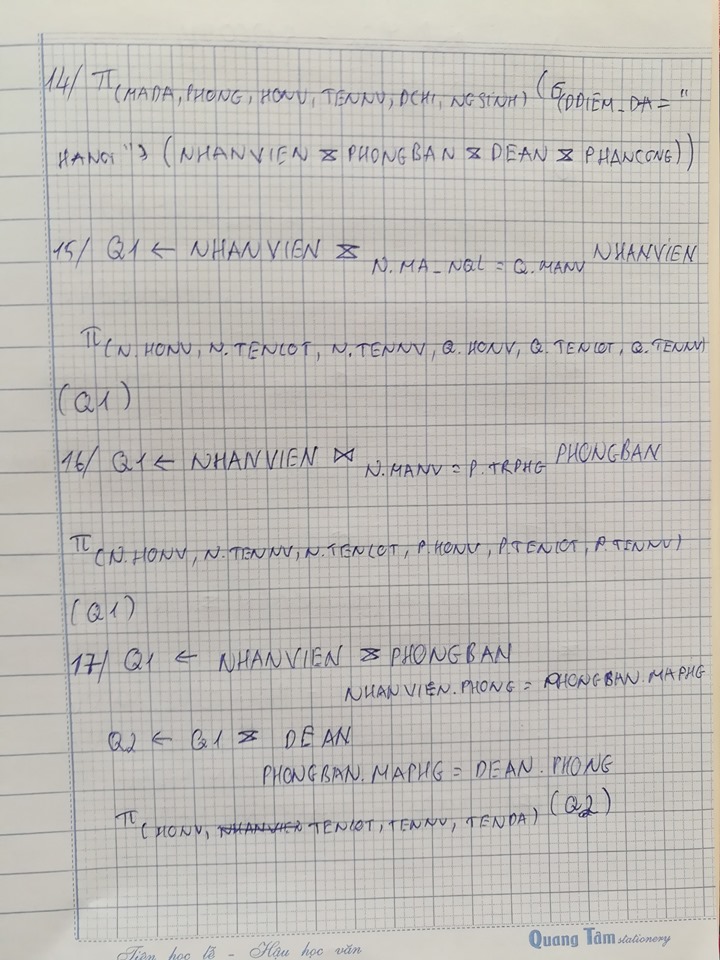 14/ π(MADA, PHONG, HONV, TENNV, DCHI, NGSINH) (σ(DDIEM_DA = "
HANOI") (NHANVIEN ⋈ PHONGBAN ⋈ DEAN ⋈ PHANCONG))
15/ Q1 ← NHANVIEN ⋈ N.MA_NQL = Q.MANV NHANVIEN
π(N.HONV, N.TENLOT, N.TENNV, Q.HONV, Q.TENLOT, Q.TENNV)
(Q1)
16/ Q1 ← NHANVIEN ⋈ N.MANV = P.TRPHG PHONGBAN
π(N.HONV, N.TENNV, N.TENLOT, P.HONV, P.TENLOT, P.TENNV)
(Q1)
17/ Q1 ← NHANVIEN ⋈ PHONGBAN
NHANVIEN.PHONG = PHONGBAN.MAPHG
Q2 ← Q1 ⋈ DEAN
PHONGBAN.MAPHG = DEAN.PHONG
π(HONV, NHANVIEN TENLOT, TENNV, TENDA) (Q2)
Tiên học lễ - Hậu học văn
Quang Tâm stationery